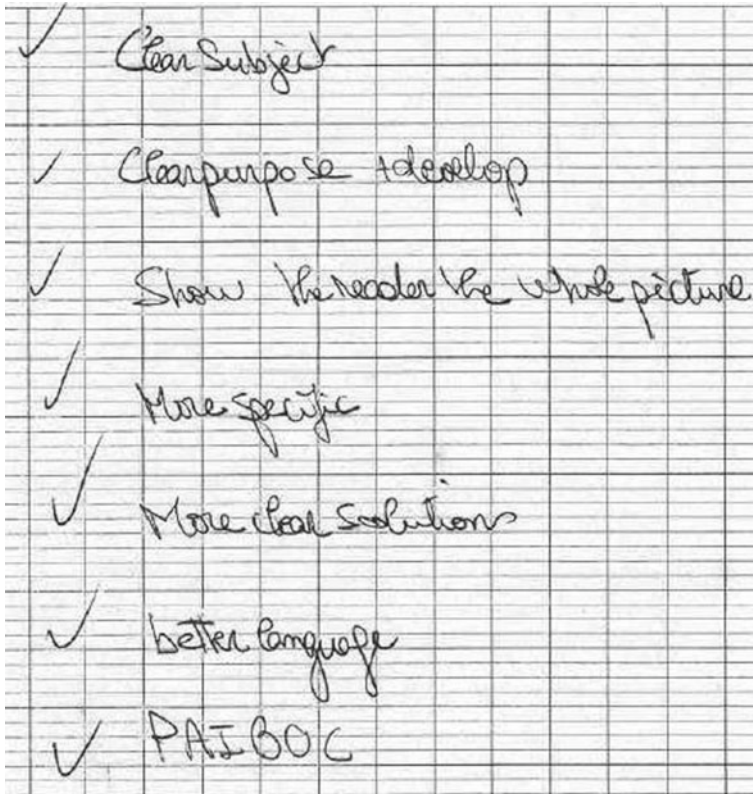 ✓ Clear Subject
✓ Clear purpose + develop
✓ Show the reader the whole picture
✓ More specific
✓ More clear solutions
✓ better language
✓ PAIBOC